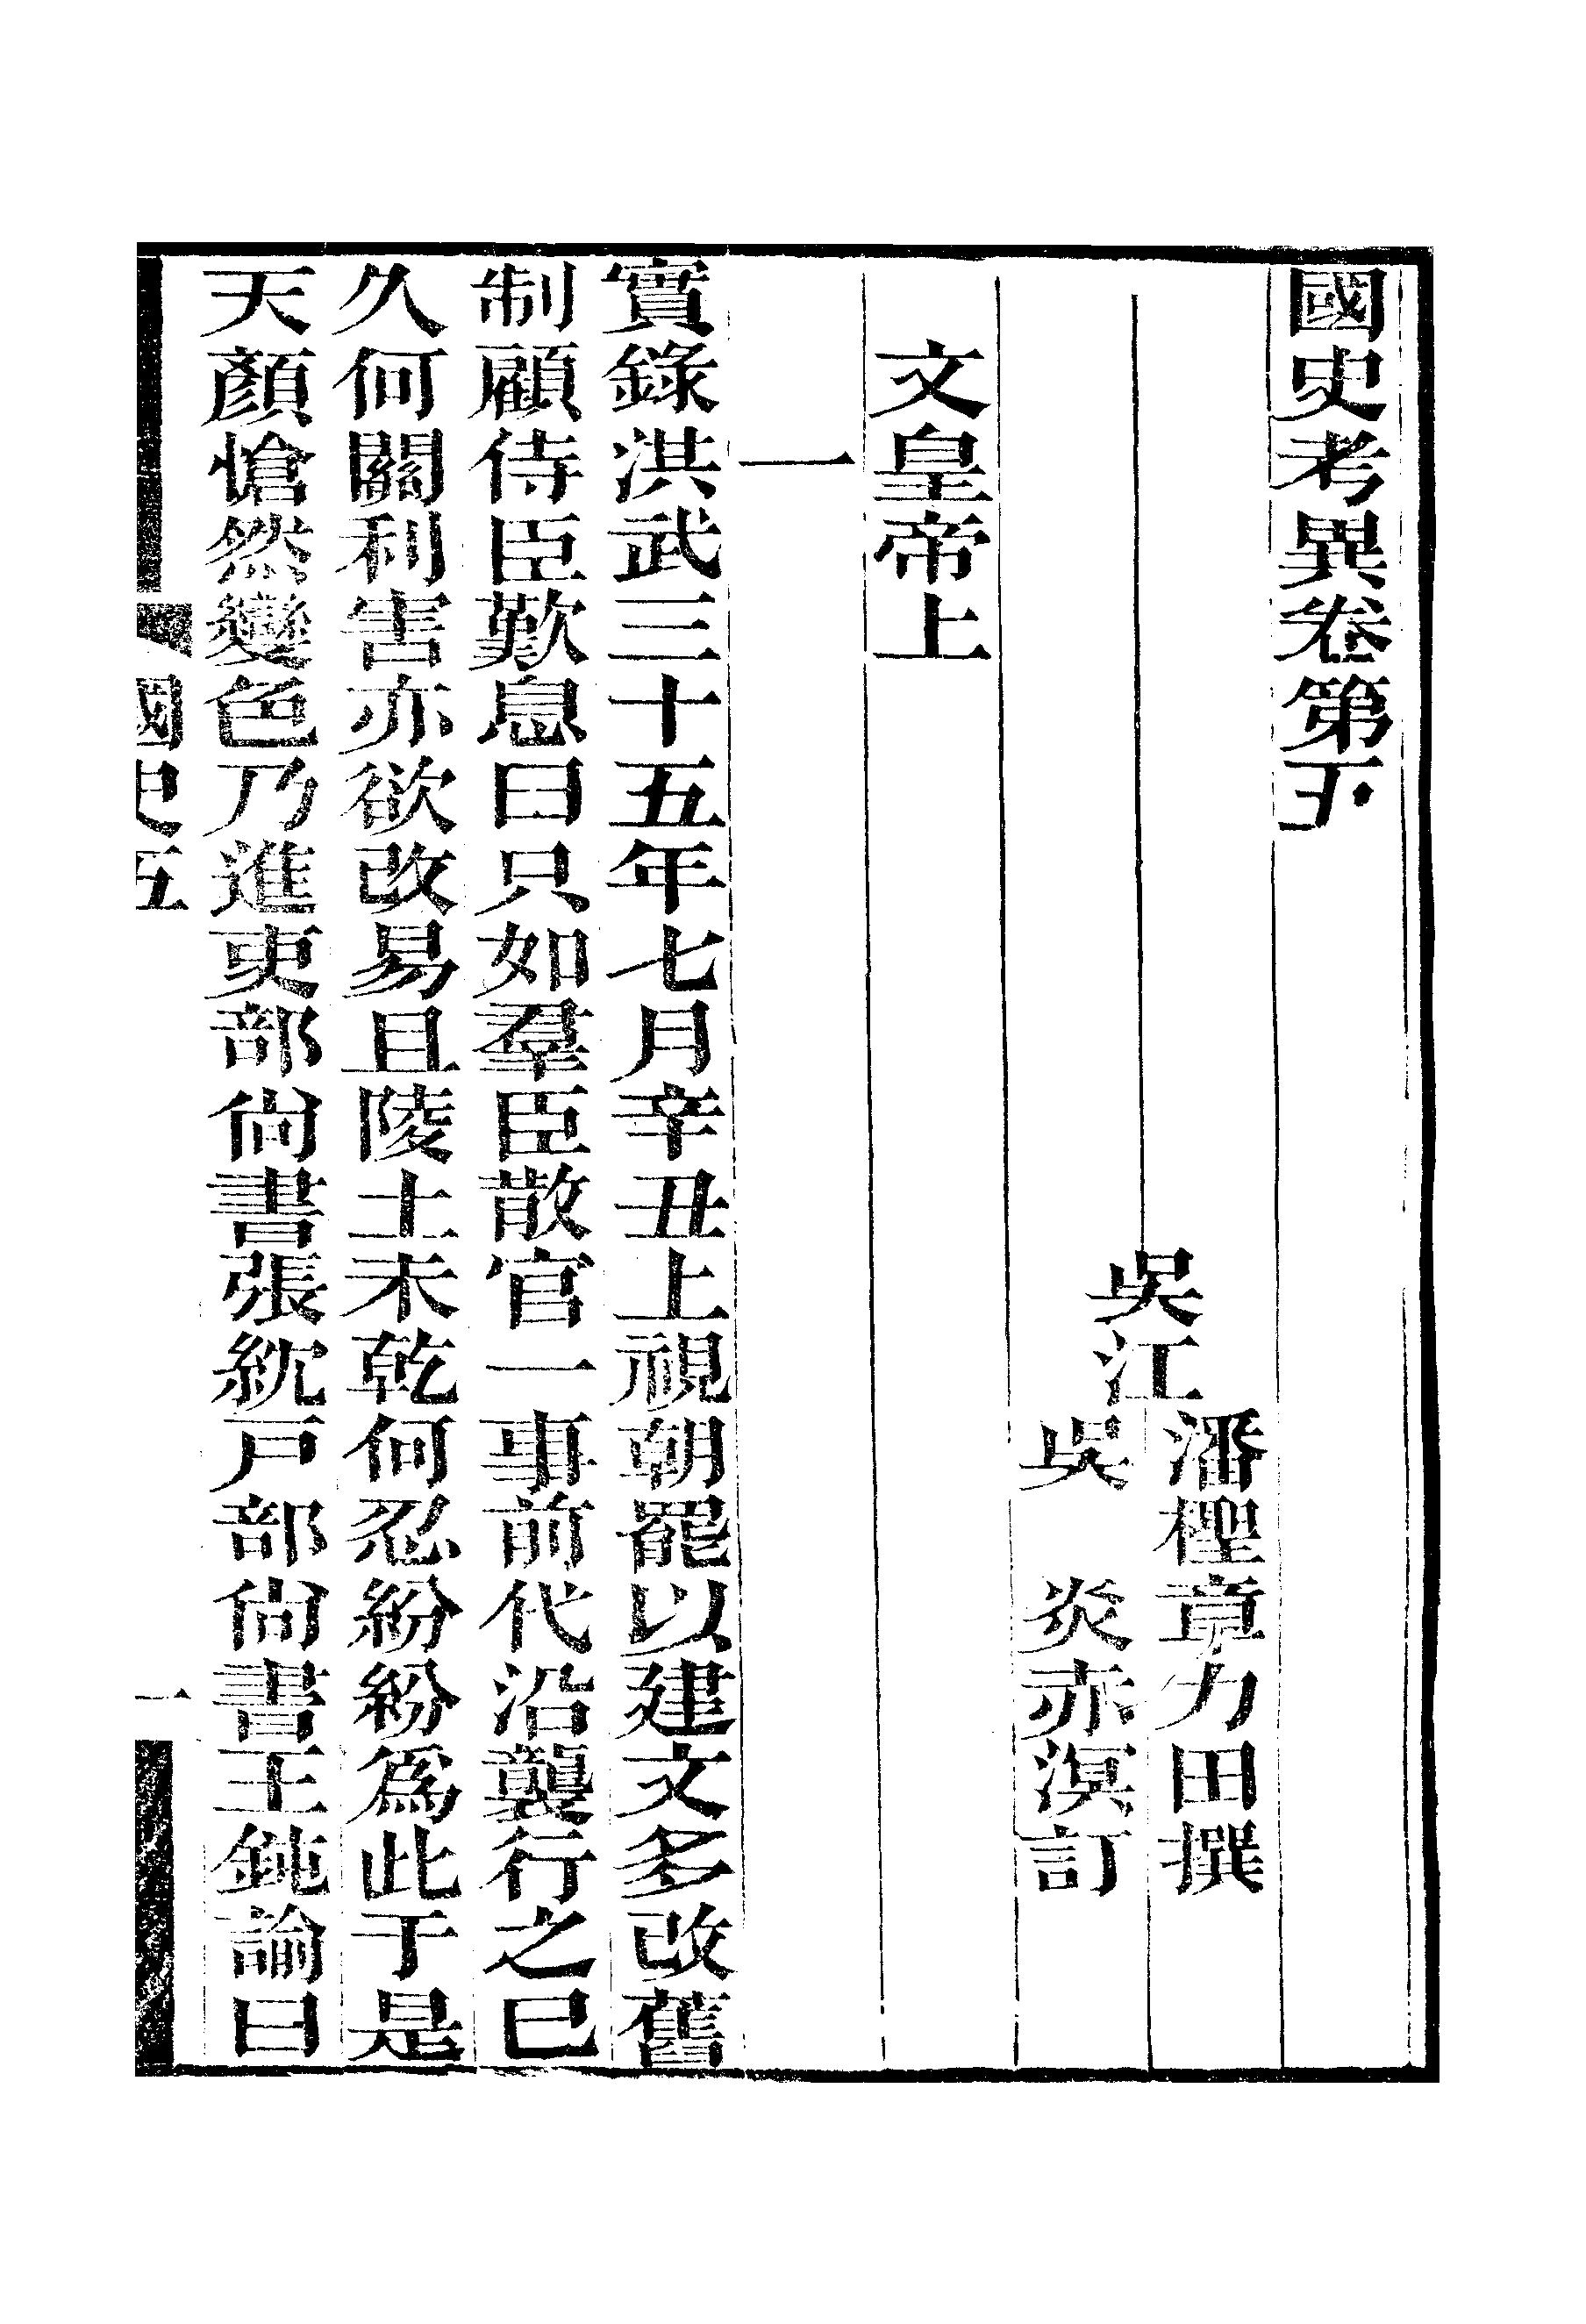 國史考異卷第五
吳江
潘檉章力田撰
吳　炎赤溟訂
文皇帝上
一
實錄洪武三十五年七月辛丑上視朝罷以建文多改舊
制顧侍臣歎息曰只如羣臣散官一事前代沿襲行之已
久何關利害亦欲改易且陵土未乾何忍紛紛爲此于是
天顏愴然變色乃進吏部尙書張紞戶部尙書王鈍諭曰
國史五
一